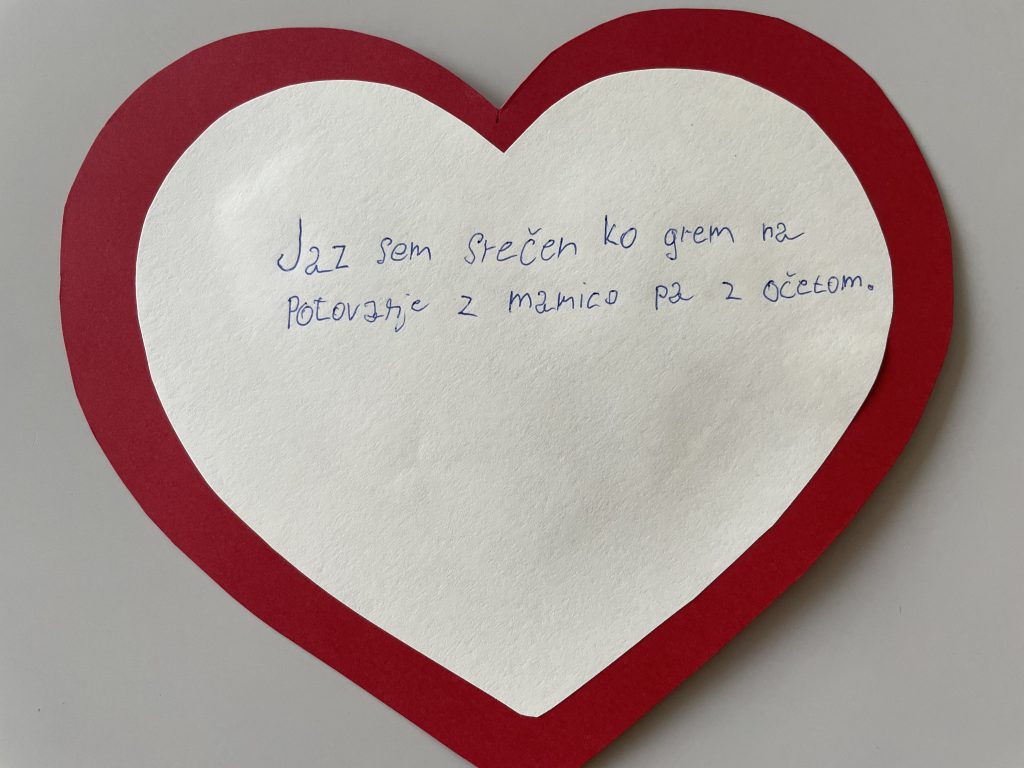 Jaz sem srečen ko grem na
potovanje z mamico pa z očetom.